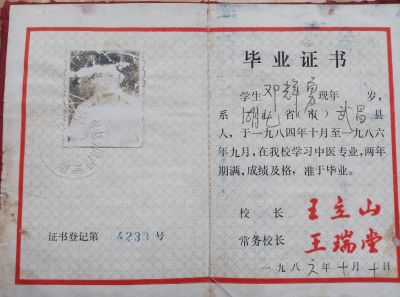 毕业证书
学生邓辉勇现年 岁,
系湖北省(市)武昌县
人,于一九八四年十月至一九八六
年九月,在我校学习中医专业,两年
期满,成绩及格,准于毕业。
校 长 王立山
常务校长 王瑞堂
一九八六年十月十日
证书登记第 4233 号